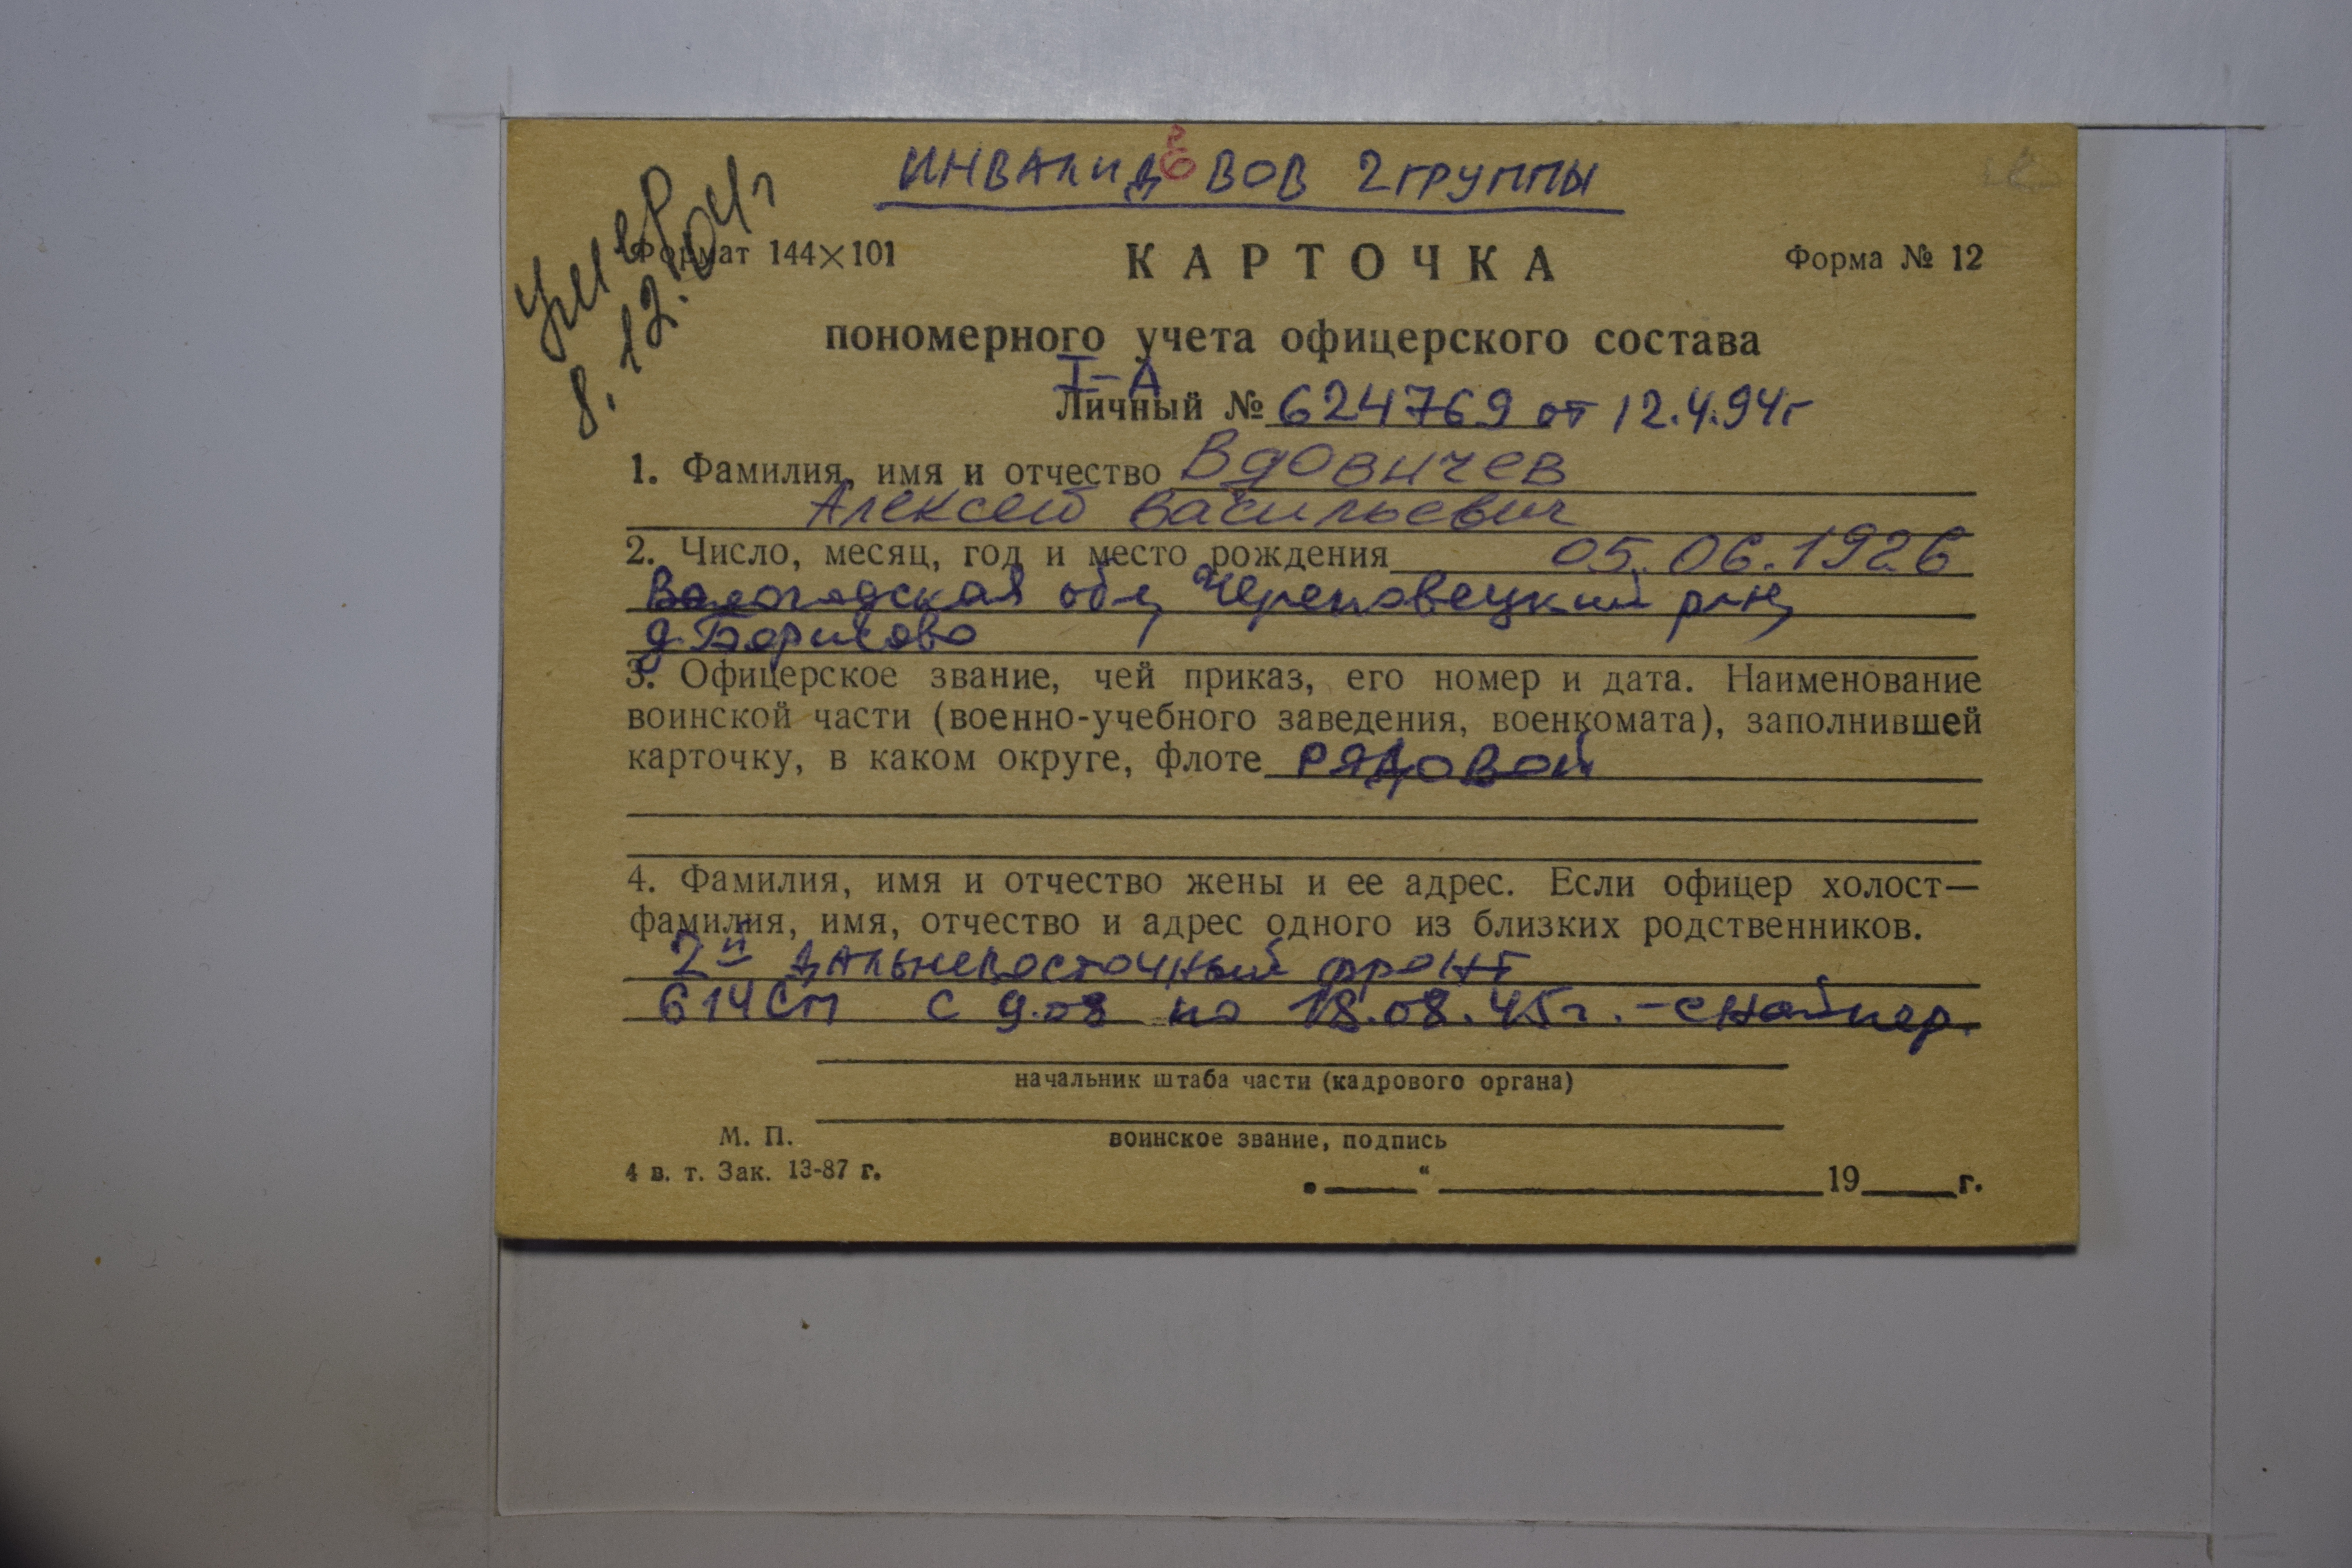 ИНВАЛИД ВОВ 2 ГРУППЫ
Умер
8.12.04г
Формат 144×101
КАРТОЧКА
Форма № 12
пономерного учета офицерского состава
I-А
Личный № 624769 от 12.4.94г
1. Фамилия, имя и отчество Вдовичев
Алексей Васильевич
2. Число, месяц, год и место рождения 05.06.1926
Вологодская обл, Череповецкий р-н,
д. Борисово
3. Офицерское звание, чей приказ, его номер и дата. Наименование
воинской части (военно-учебного заведения, военкомата), заполнившей
карточку, в каком округе, флоте РЯДОВОЙ
4. Фамилия, имя и отчество жены и ее адрес. Если офицер холост—
фамилия, имя, отчество и адрес одного из близких родственников.
2й дальневосточный фронт
614СП с 9.08 по 18.08.45г. - снайпер.
начальник штаба части (кадрового органа)
М. П.
воинское звание, подпись
4 в. т. Зак. 13-87 г.
„ “ 19 г.